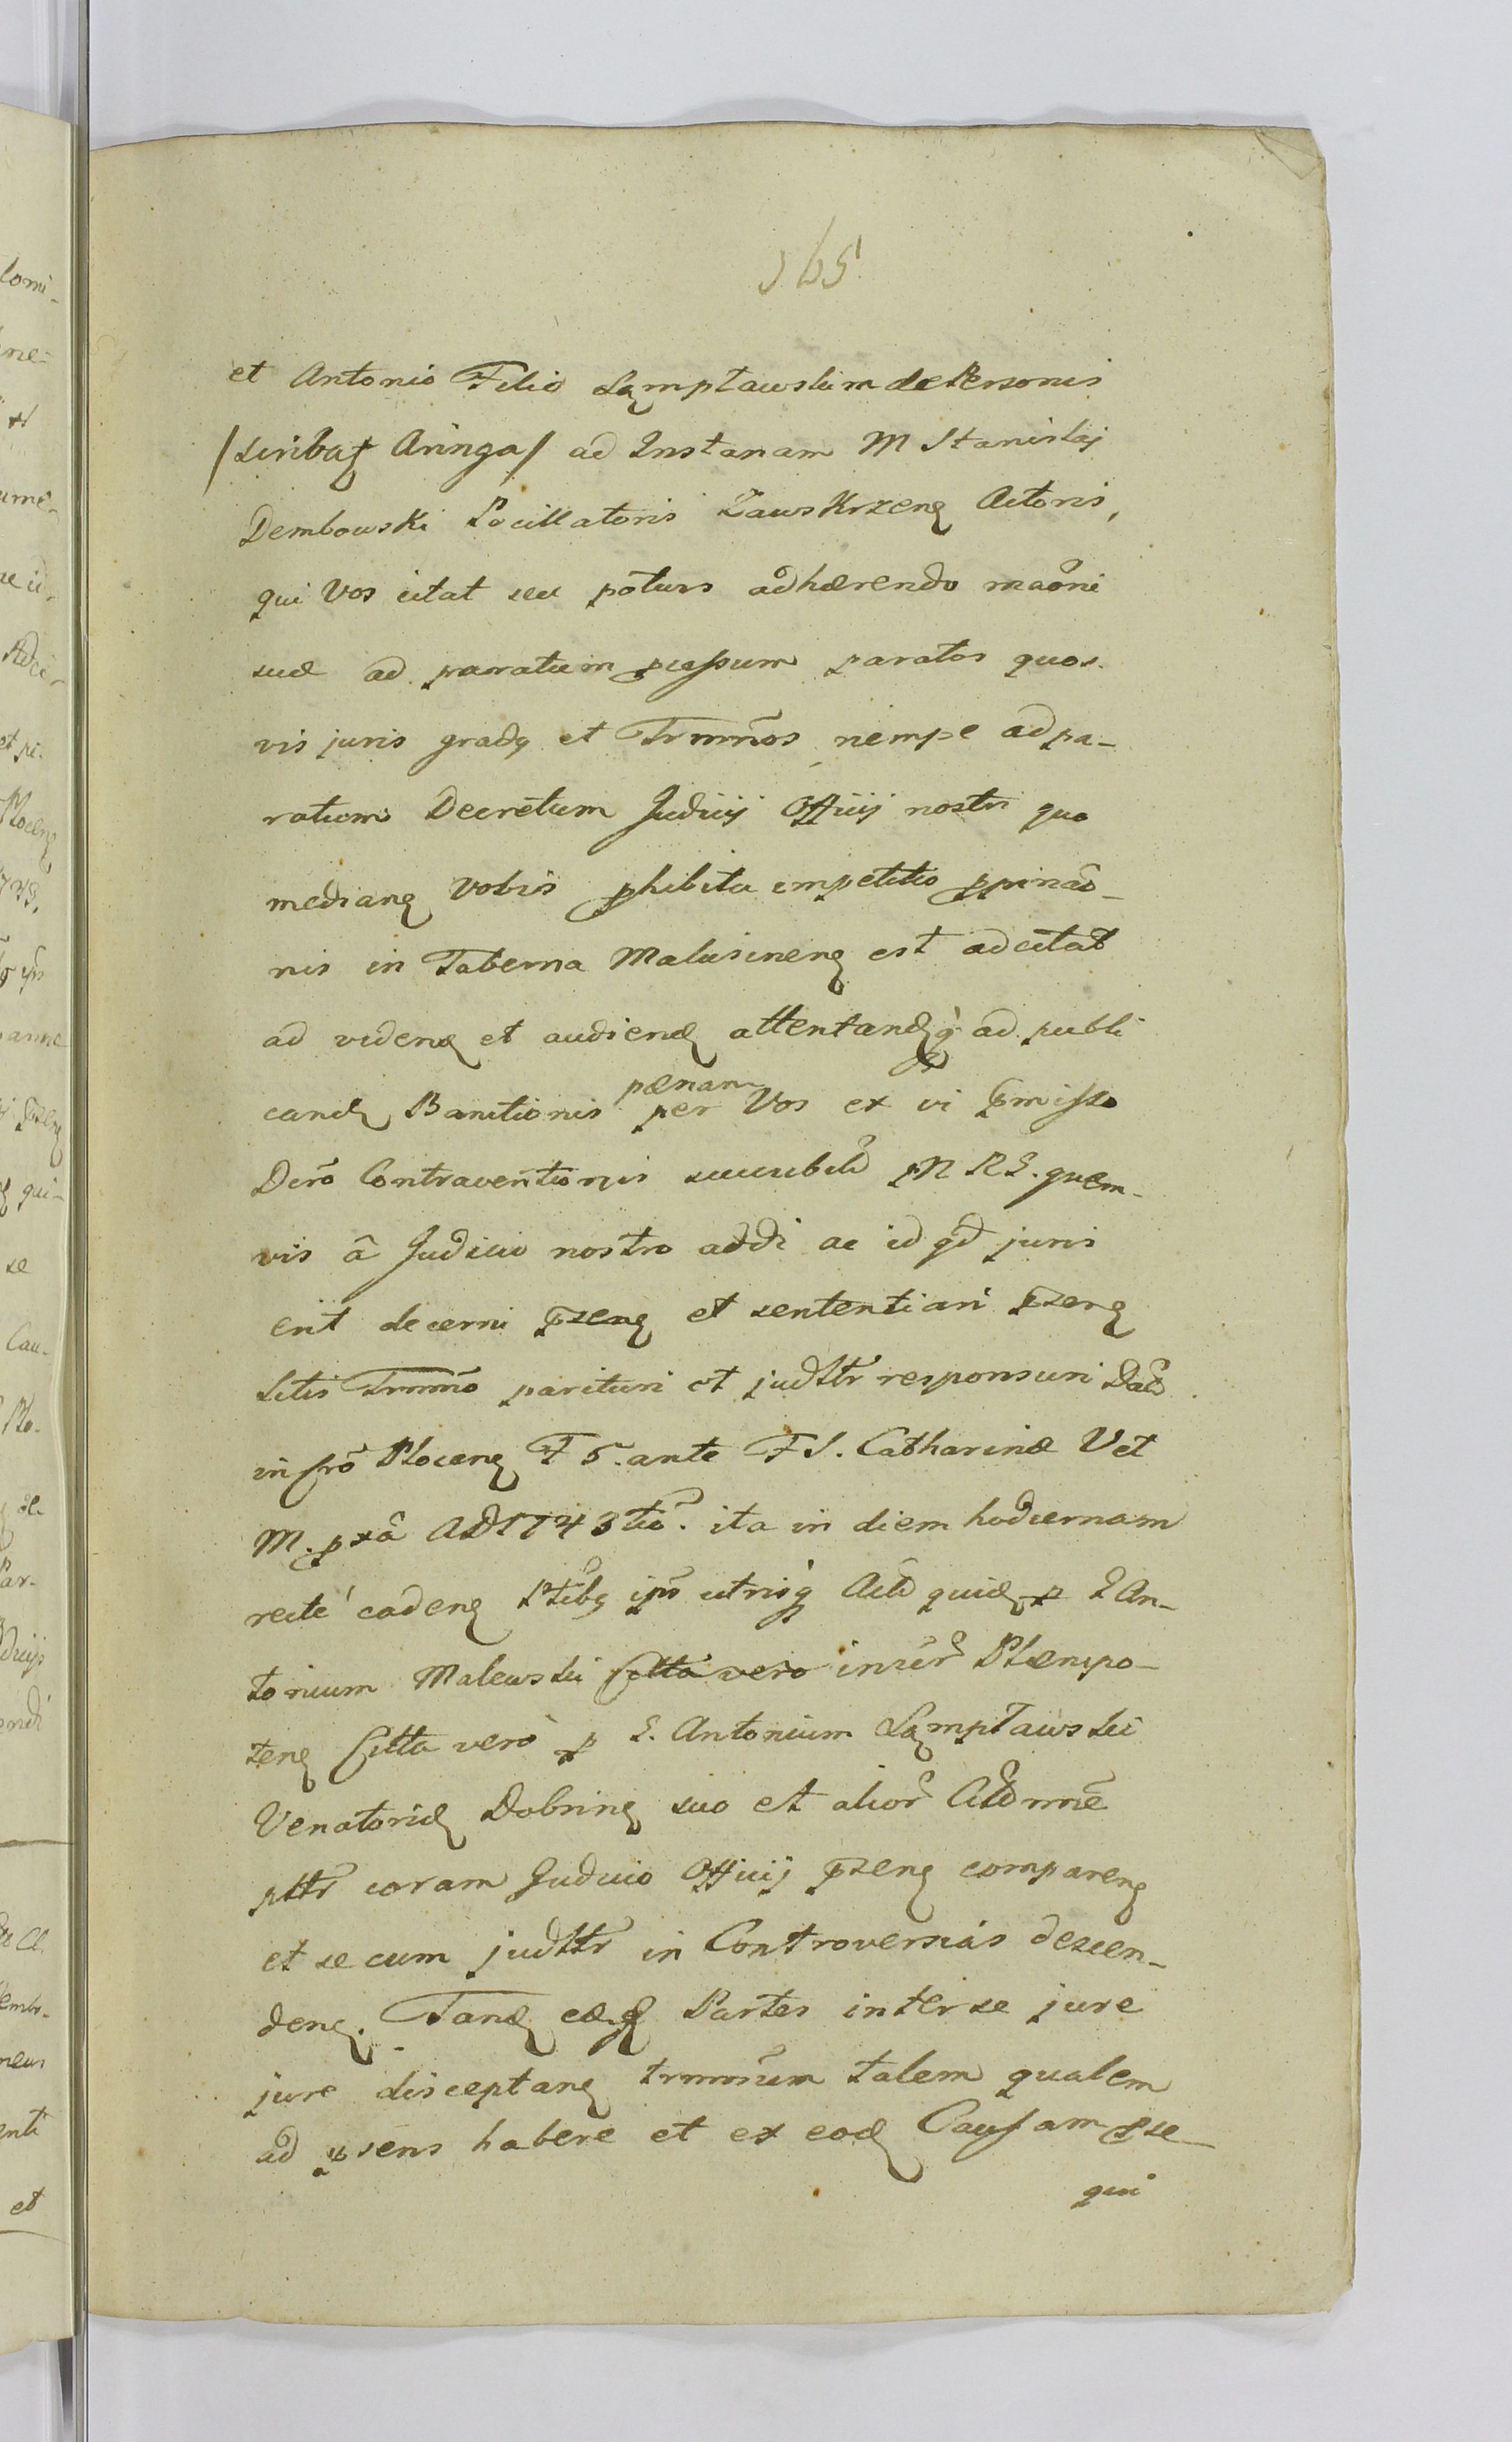 365
et Antonio Filio Lęmptawskim de Personis
/scribatɟ Aringa/ ad Instanam M Stanislaj
Dembowski Pocillatoris Zawskrzenȝ Actoris,
qui Vos citat seu pòtuis adhærendo maõni
suæ ad paratum pᷓessum paratos quos-
vis juris gradꝯ et Trmños nempe ad pa-
ratum Decretum Judicij Officij nostri quo
medianȝ Vobis ꝓhibita impetitio ꝓpinaõ-
nis in Taberna Malusinenȝ est adcitat
ad videnȝ et audienȝ attentandȝ q̀ ad publi
candȝ Banitionis pænam per Vos ex vi p̃misso
Dcro Contraventionis succubit pN RS. quem-
vis â Judicio nostro addi ac id qd juris
erit decerni p̃senȝ et sententiari p̃senȝ
Litis Trmmo parituri et judttr responsuri Dat
in Cro Plocenȝ F 5. ante F S. Catharinæ Vet
M. pxâ AD 1743tio. ita in diem hodiernam
recte cadenȝ Ptibꝯ ipis utrisq̀ Act quidȝ p G An-
tonium Malewski Citta vero infer Plenipo-
tenȝ Citta vero p G. Antonium Lęmptawski
Venatoridȝ Dobrinȝ suo et alior Citt nnoe
pttr coram Judicio Officij p̃senȝ comparenȝ
et se cum judttr in Controversias descen-
denȝ. Tandȝ eædȝ Partes inter se jure
jure disceptanȝ trmmum talem qualem
ad p̃sens habere et ex eodȝ Causam ꝓse-
qui